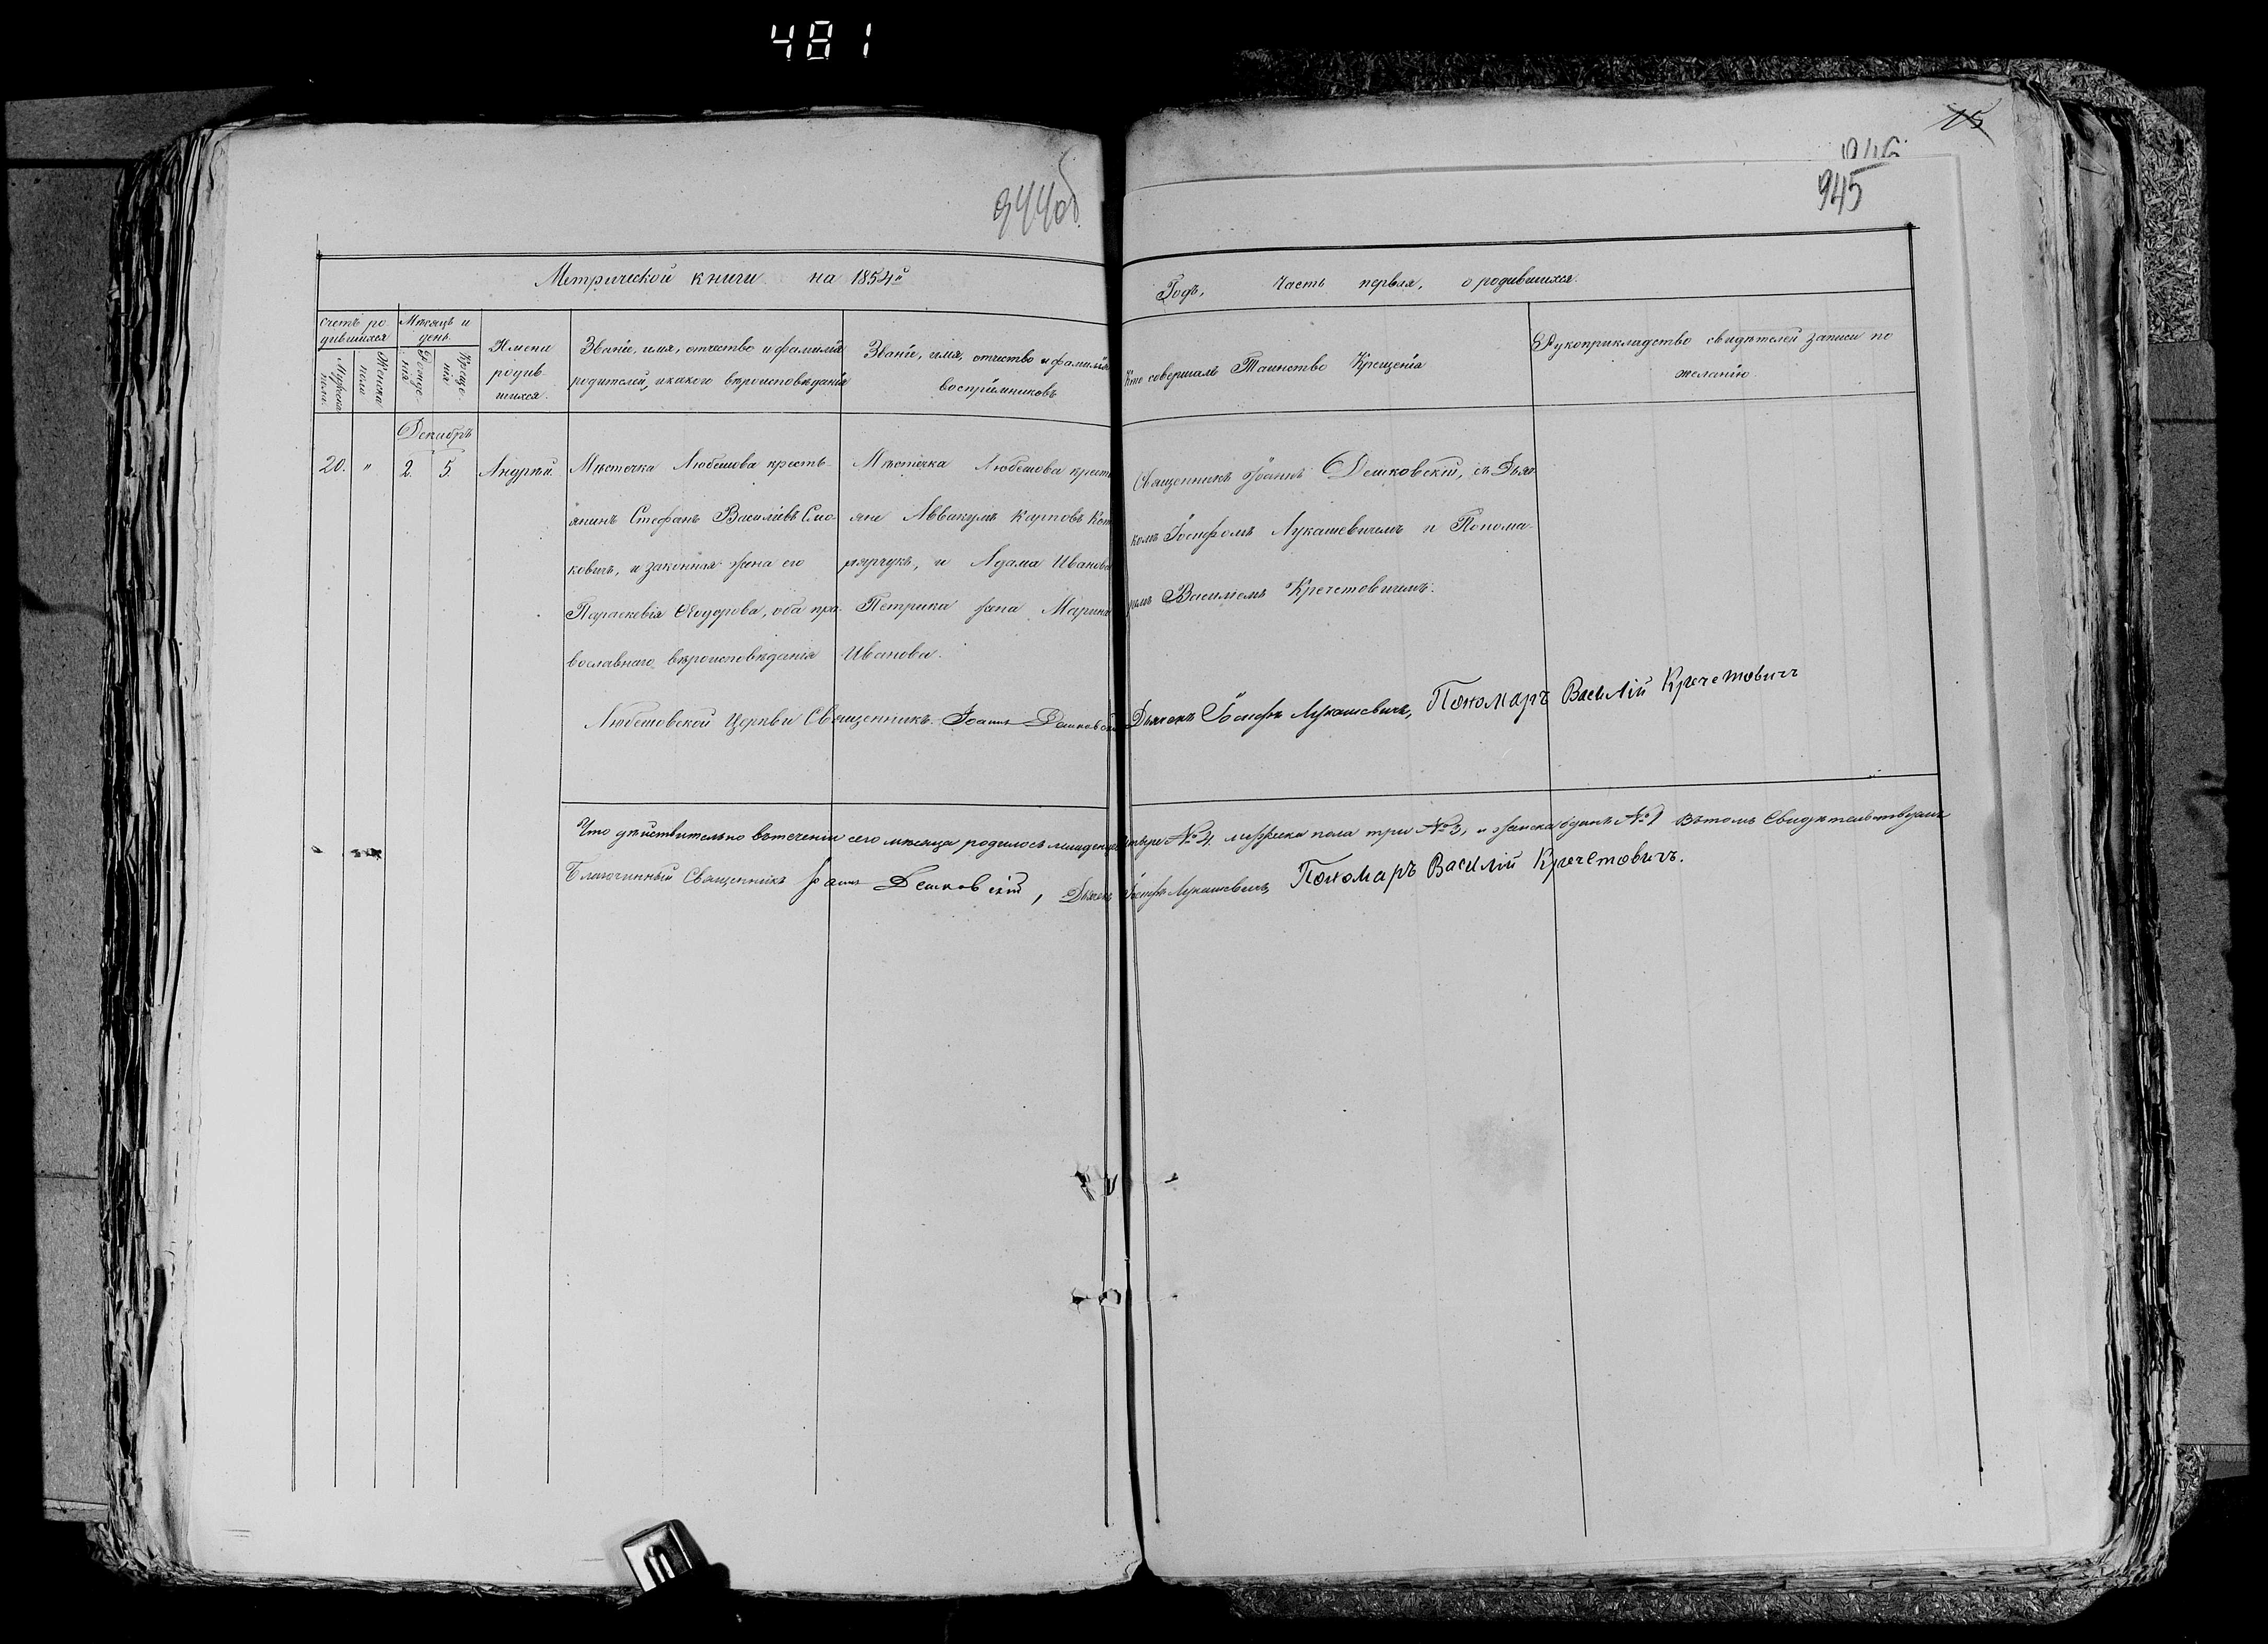 481
944об
15
946
945
Метрической книги на 1854й
Годъ, Часть первая, о родившихся.
Счетъ ро
дившихся
Мужеска
пола.
Женска
пола
Мѣсяцъ и
день.
Рожде
нія
Креще
нія
Имена
родив-
шихся.
Званіе, имя, отчество и фамилія
родителей, и какого вѣроисповѣданія
Званіе, имя, отчество и фамилія
воспріемниковъ
Кто совершалъ Таинство Крещенія
Рукоприкладство свидѣтелей записи по
желанію.
Декабрь
20. " 2. 5. Андрей.
Мѣстечка Любешова кресть-
янинъ Стефанъ Василіевъ Смо-
ковичъ, и законная жена его
Параскевія Ѳеодорова, оба пра-
вославнаго вѣроисповѣданія
Мѣстечка Любешова кресть
яне Аввакумъ Карповъ
и Адама Иванова
Петрика жена Марина
Иванова.
Священникъ Іоаннъ Демковскій, съ Дьяч
комъ Іосифомъ Лукашевичемъ и Понома-
ремъ Василіемъ Кречетовичемъ.
Любешовской Церкви Священникъ Іоаннъ Демковскій
Дьячекъ Іосифъ Лукашевичъ, Пономаръ Василій Кречетовичъ
Что дѣйствительно втеченіи сего мѣсяца родилось младенцевъ четыре №4. мужеска пола три №3, и женска одинъ №1 Вѣтомъ Свидѣтельствуемъ
Благочинный Священникъ Іоаннъ Демковскій, Дьячекъ Іосифъ Лукашевичъ, Пономаръ Василій Кречетовичъ.